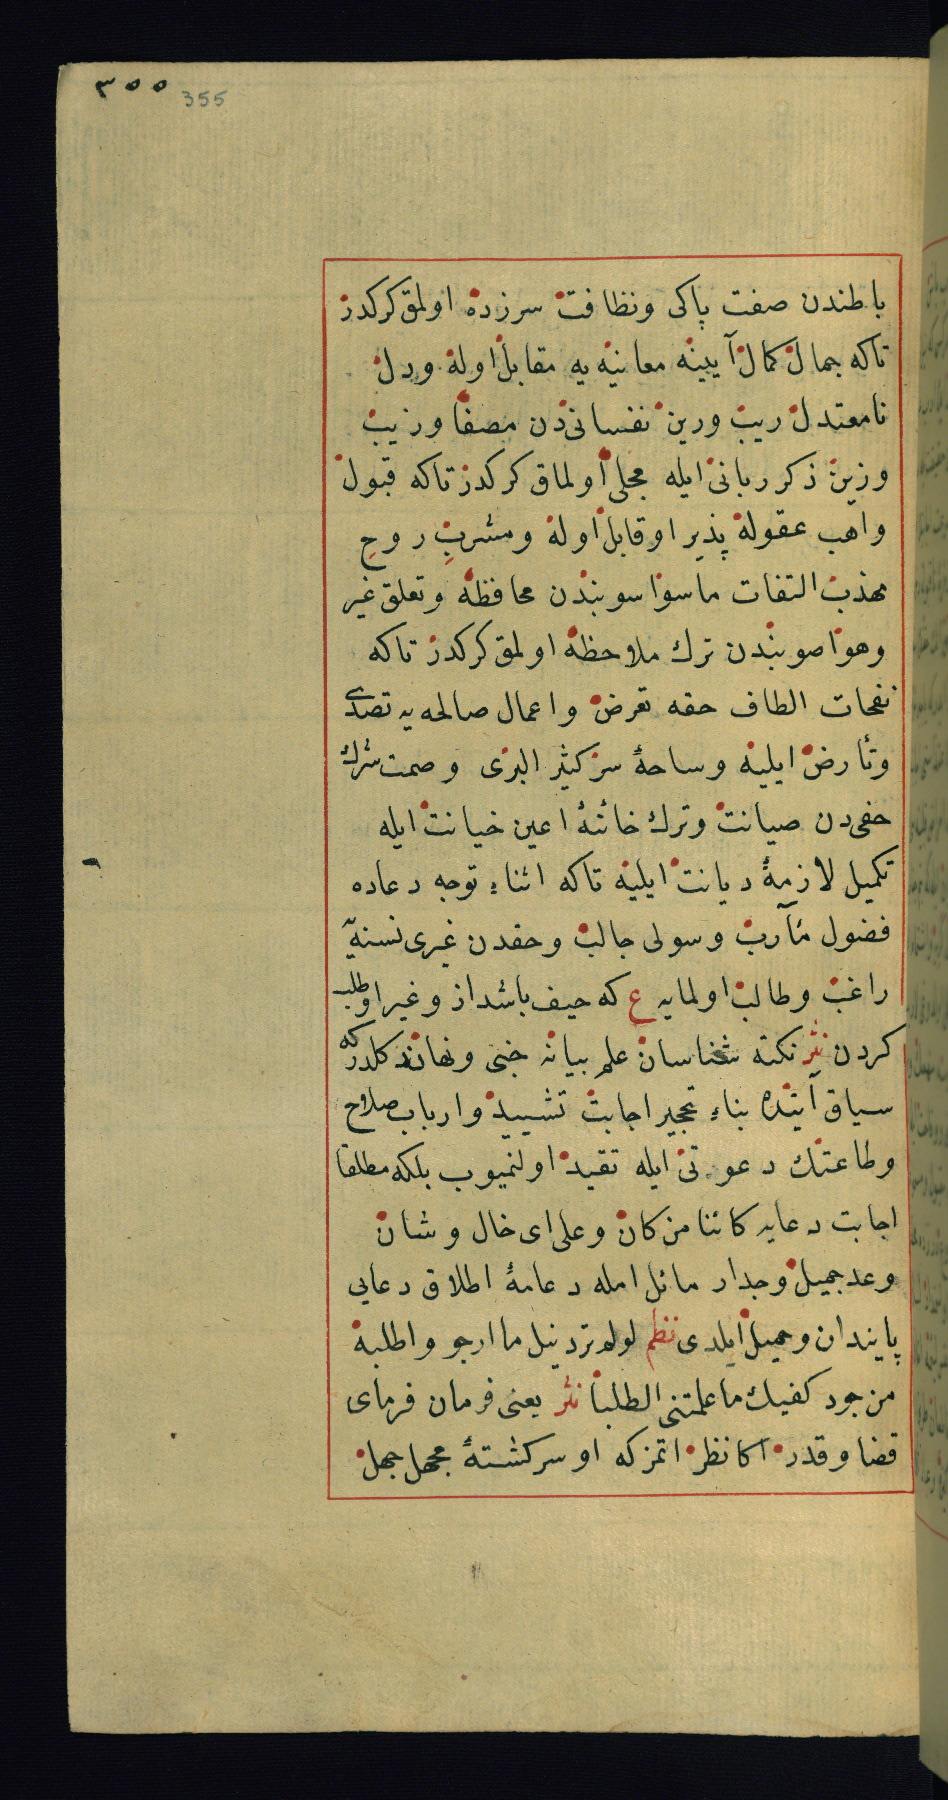 ٣٥٥ 355
باطندن صفت پاكى ونظافت سرزده اولمق كركدر
تاكه جمال كمال آيينه معانيه يه مقابل اوله ودل
نامعتدل ريب ورين نفسانى دن مصفا وزيب
وزين ذكر ربانى ايله مجلى اولماق كركدر تاكه قبول
واهب عقوله پذير اوقابل اوله ومشرب روح
مهذب التفات ماسوا سوبندن محافظه وتعلق غير
وهوا صوبندن ترك ملاحظه اولمق كركدر تاكه
نفحات الطاف حقه تعرض واعمال صالحه يه تصدى
وتأرض ايلينه وساحهٔ سر كثير البرى وصمت شرك
خفى دن صيانت وترك خائنهٔ اعين خيانت ايله
تكميل لازمهٔ ديانت ايلينه تاكه اثناء توجه دعاده
فضول مآرب وسولى جالب وحقدن غيرى نسنيه
راغب وطالب اولمايه ع كه حيف باشد از وغير او طلب
كردن نثر نكته شناسان علم بيانه خفى ونهان دكلدر كه
سياق آيتده بناء تحجير اجابت تشييد وارباب صلاح
وطاعتك دعوتى ايله تقيد اولنميوب بلكه مطلقا
اجابت دعايه كائنا من كان وعلى اى حال وشان
وعد جميل وجدار مائل امله دعامهٔ اطلاق دعايى
پايندان وحميل ايلدى نظم لولم ترد نيل ما ارجو واطلبه
من جود كفيك ما علمتنى الطلبا نثر يعنى فرمان فرماى
قضا وقدر اكا نظر اتمز كه او سركشتهٔ مجهل جهل